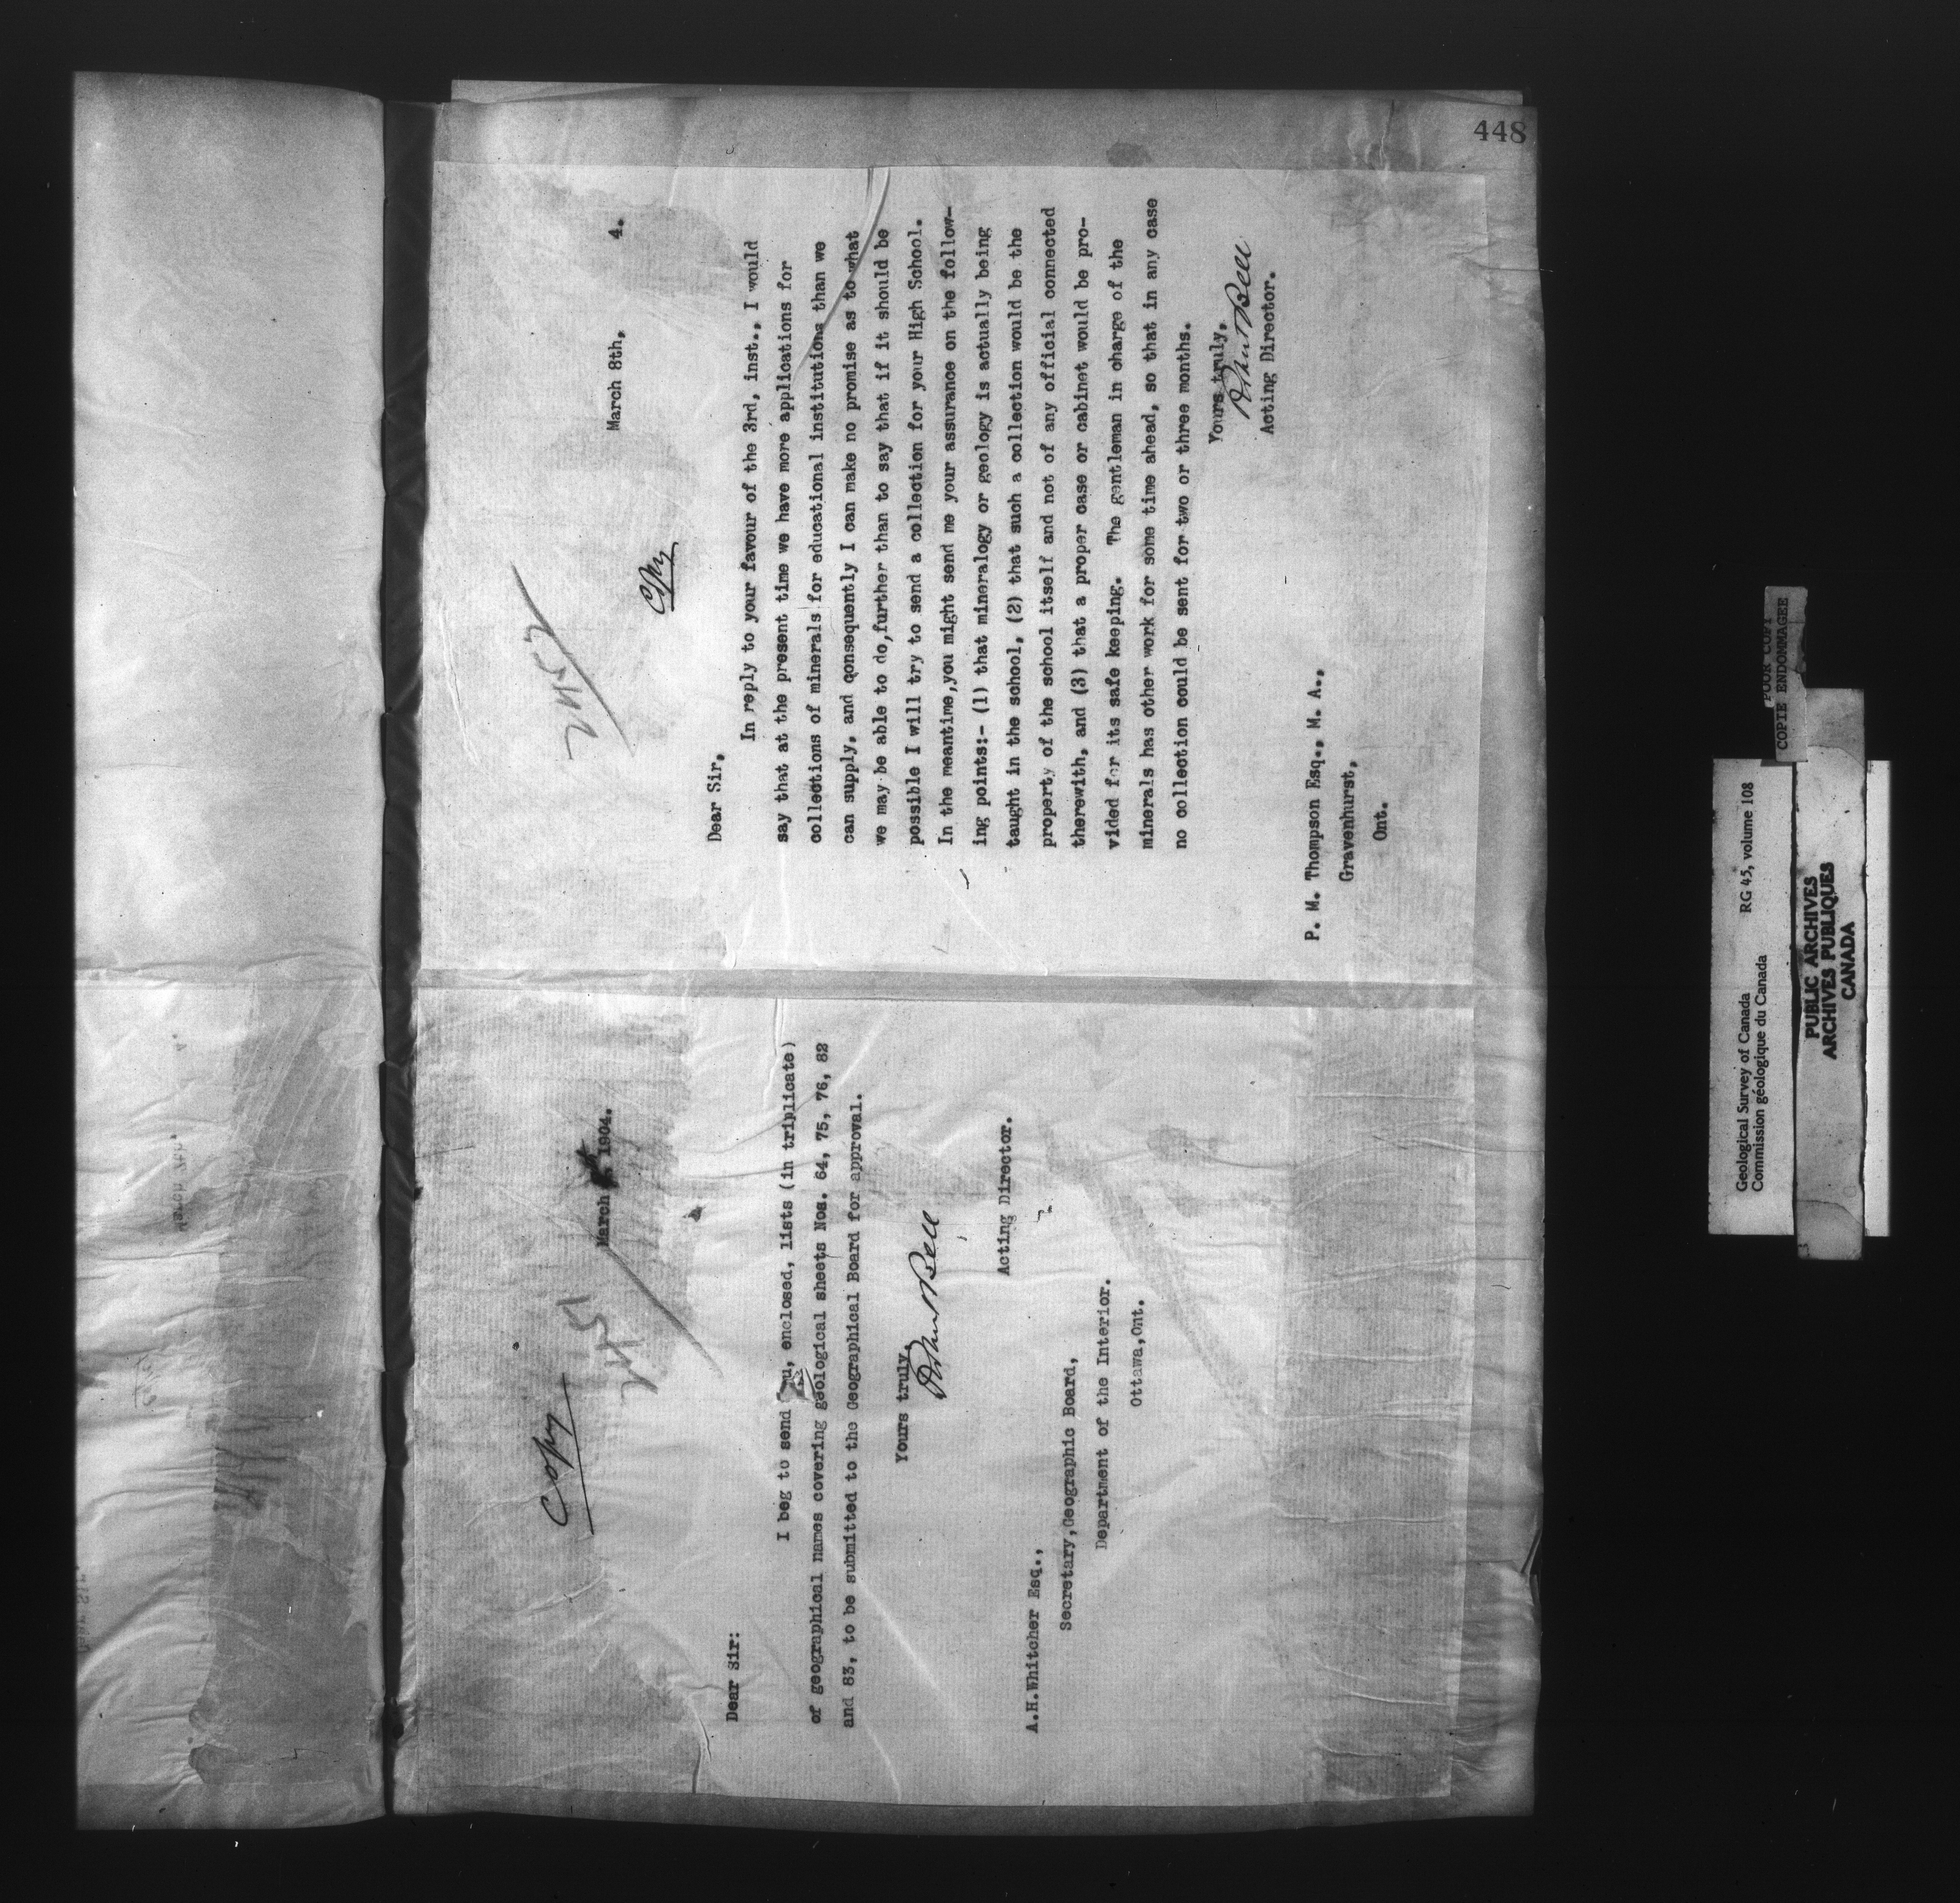 448
Copy
2451
March 1904.
Dear Sir:
I beg to send you, enclosed, lists (in triplicate)
of geographical names covering geological sheets Nos. 64, 75, 76, 82
and 83, to be submitted to the Geographical Board for approval.
Yours truly,
Robert Bell
Acting Director.
A.H.Whitcher Esq.,
Secretary,Geographic Board,
Department of the Interior.
Ottawa,Ont.
2452
March 8th, 4.
Copy
Dear Sir,
In reply to your favour of the 3rd, inst., I would
say that at the present time we have more applications for
collections of minerals for educational institutions than we
can supply, and qonsequently I can make no promise as to what
we may be able to do,further than to say that if it should be
possible I will try to send a collection for your High School.
In the meantime,you might send me your assurance on the follow-
ing points:- (1) that mineralogy or geology is actually being
taught in the school, (2) that such a collection would be the
property of the school itself and not of any official connected
therewith, and (3) that a proper case or cabinet would be pro-
vided for its safe keeping. The gentleman in charge of the
minerals has other work for some time ahead, so that in any case
no collection could be sent for two or three months.
Yours truly,
Robert Bell
Acting Director.
P. M. Thompson Esq., M. A.,
Gravenhurst,
Ont.
March 7th. 4.
Dear Sir
Geological Survey of Canada RG 45, volume 108
Commission géologique du Canada
POOR COPY
COPIE ENDOMMAGEE
PUBLIC ARCHIVES
ARCHIVES PUBLIQUES
CANADA